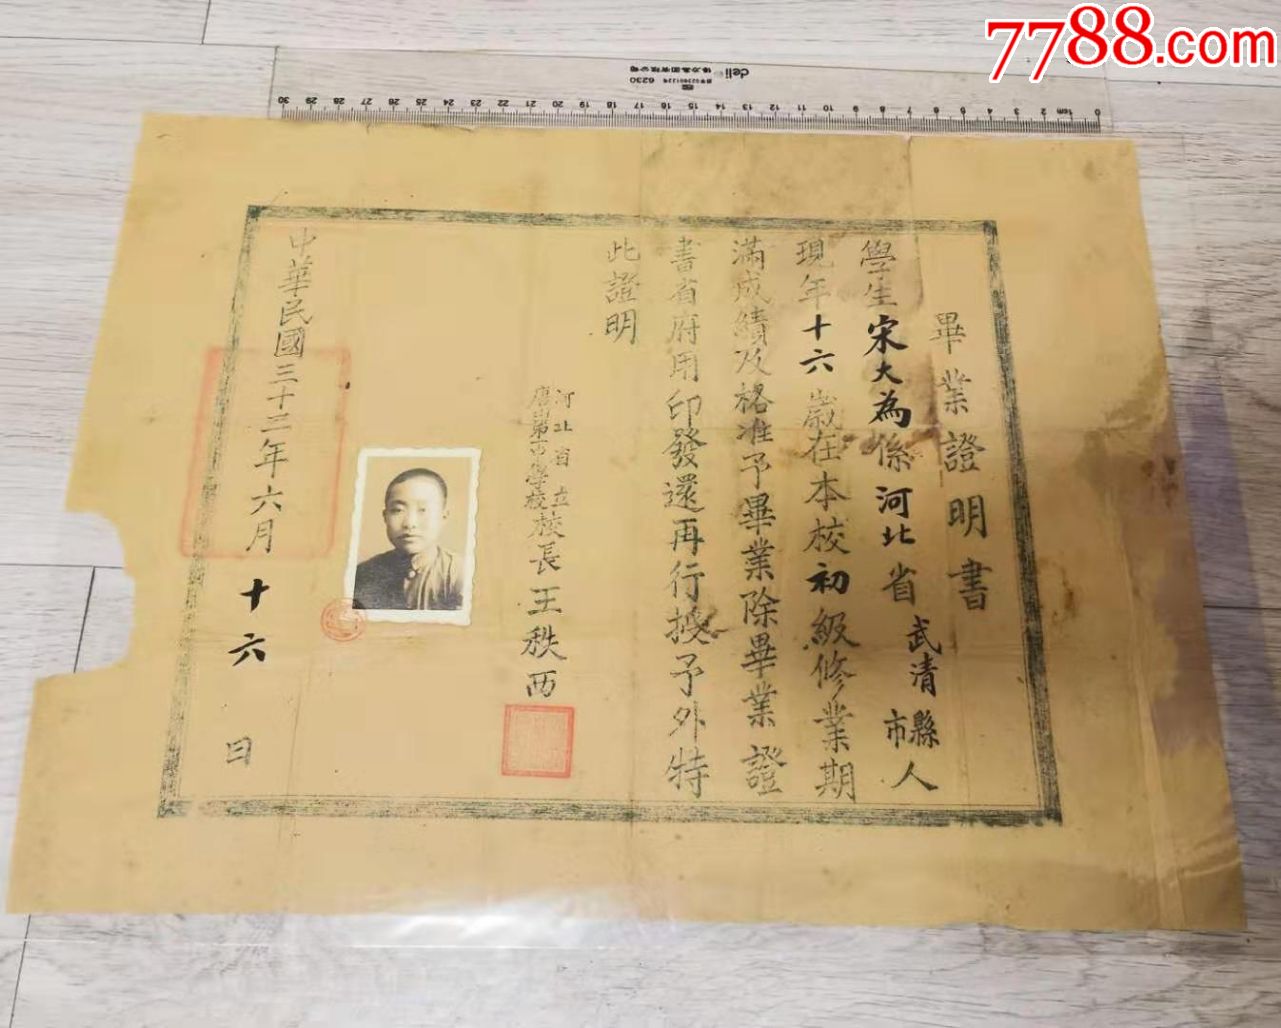 7788.com
deli
6230
0 1cm 2 3 4 5 6 7 8 9 10 11 12 13 14 15 16 17 18 19 20 21 22 23 24 25 26 27 28 29 30
畢業證明書
學生宋大為係河北省武清縣市人
現年十六歲在本校初級修業期
滿成績及格准予畢業除畢業證
書省府用印發還再行授予外特
此證明
河北省立
唐山第一中學校校長王秩西
中華民國三十三年六月十六日